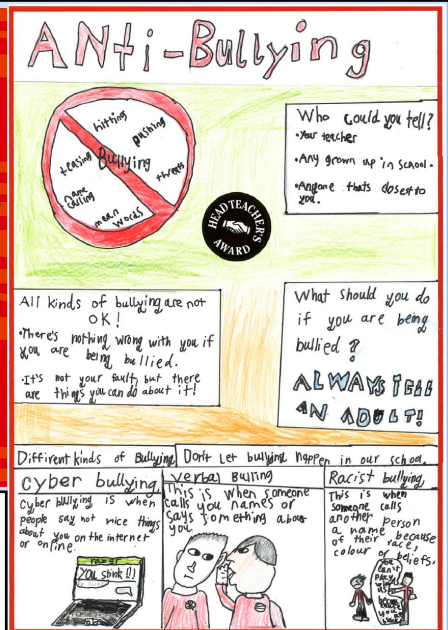 ANti-Bullying
hitting
pushing
teasing
Bullying
threats
name
calling
mean
words
HEADTEACHER'S
AWARD
Who could you tell?
•Your teacher
•Any grown up in school.
•Anyone thats closest to
you.
All kinds of bullying are not
OK!
•There's nothing wrong with you if
you are being bullied.
•It's not your fault, but there
are things you can do about it!
What should you do
if you are being
bullied?
ALWAYS TELL
AN ADULT!
Diffirent kinds of Bullying
Don't Let bullying happen in our school.
cyber bullying
Cyber bullying is when
people say not nice things
about you on the internet
or online.
YOU stink!!
verbal Bulling
This is when someone
calls you names or
says something about
you
Racist bullying
This is when
someone calls
another person
a name because
of their race,
colour or beliefs.
you
can't
play
with
us